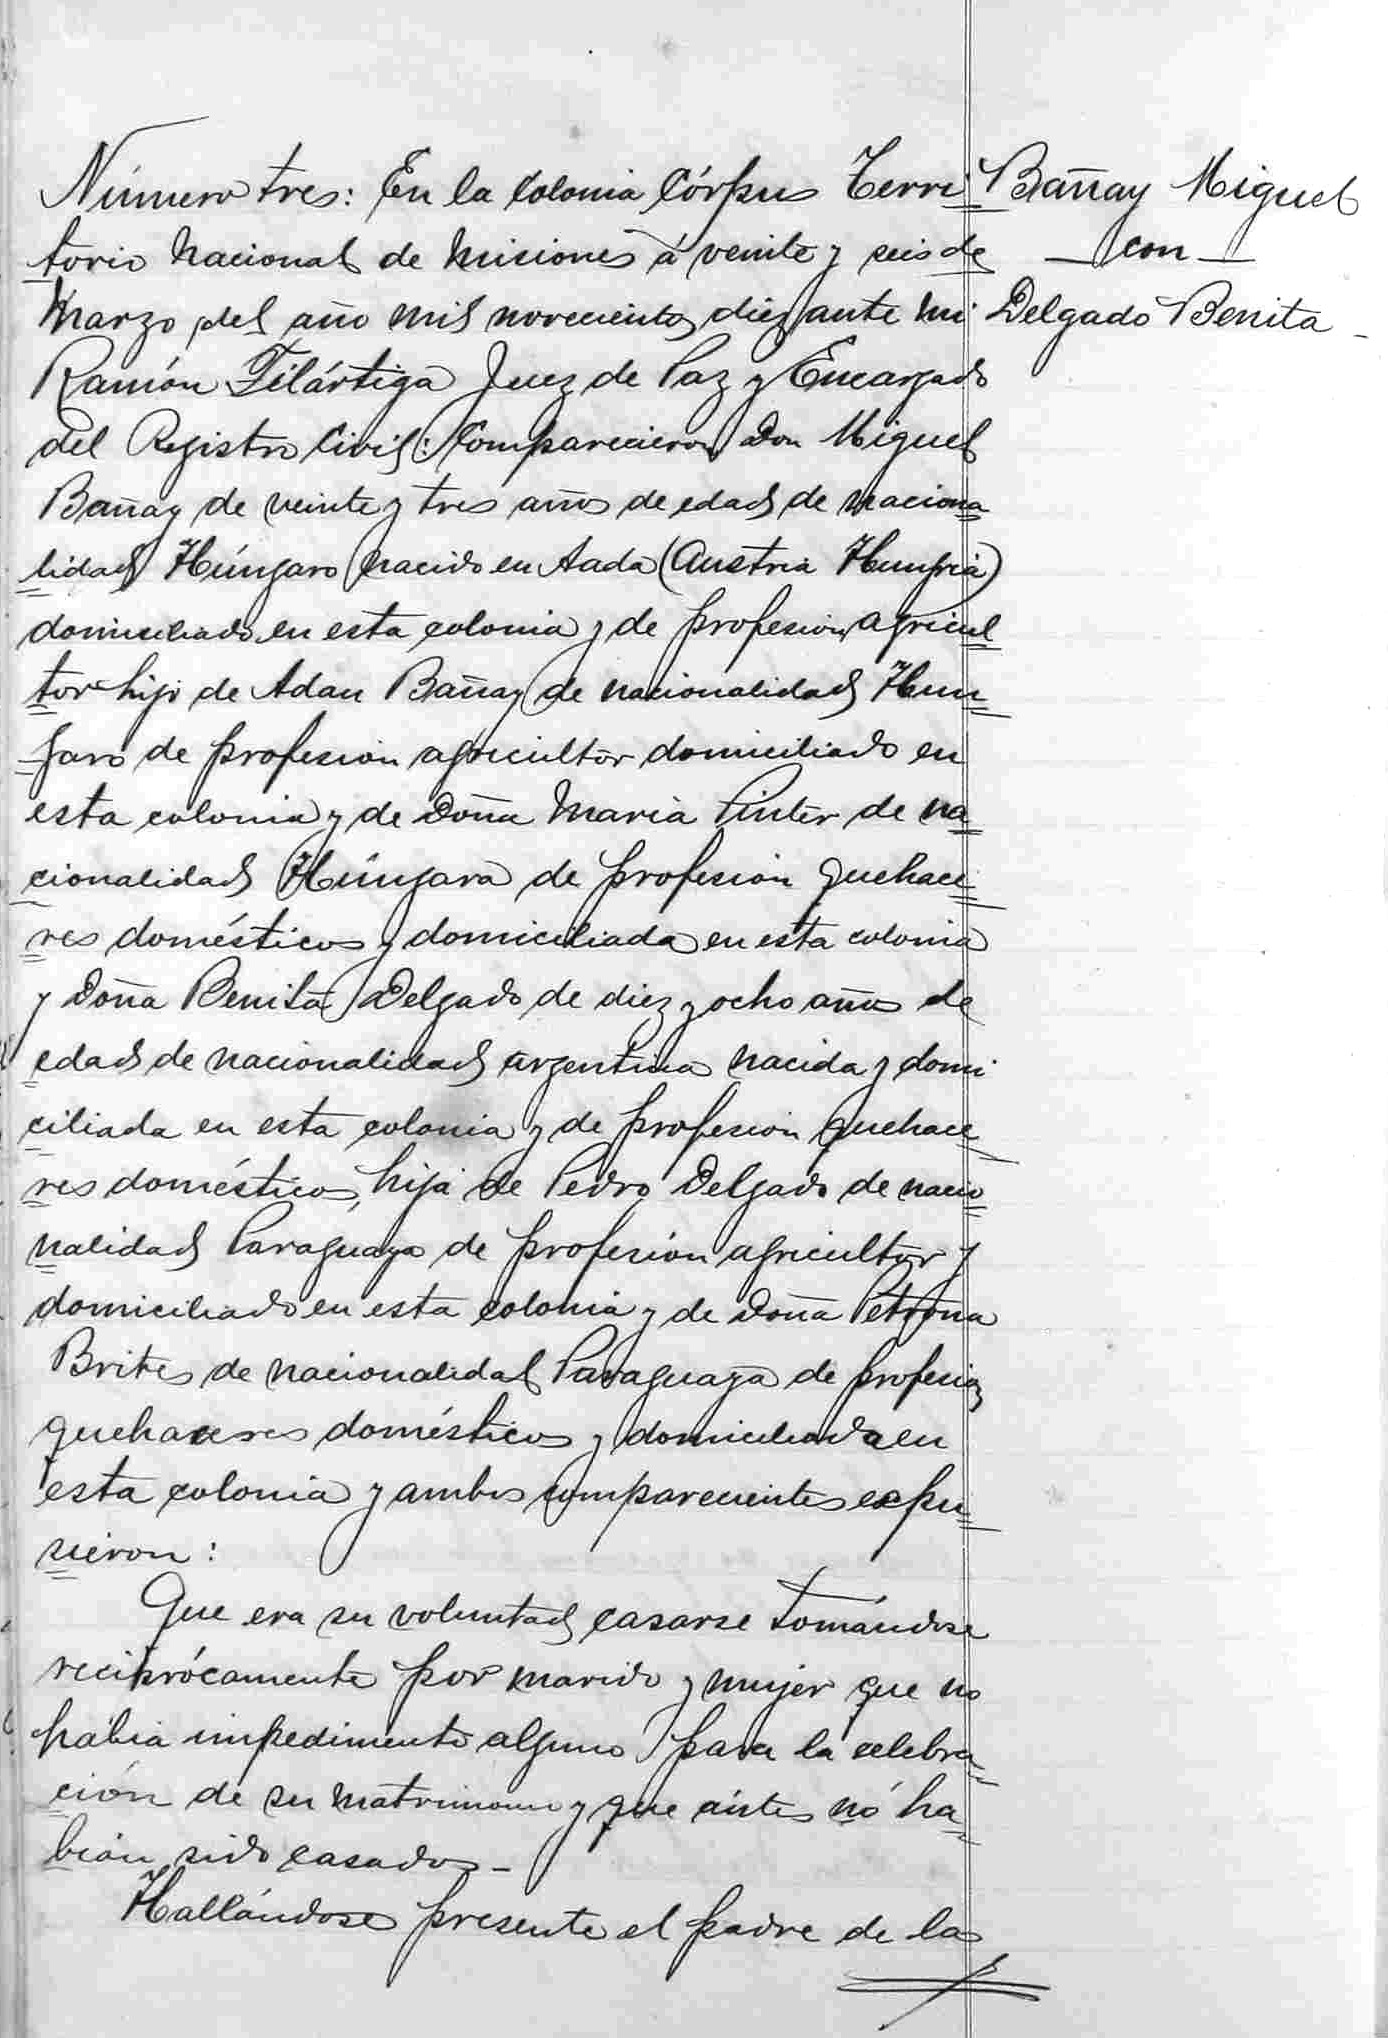 Número tres: En la Colonia Córpus Terri
torio Nacional de Misiones á veinte y seis de
Marzo del año mil novecientos diez ante mi
Ramón Filártiga Juez de Paz y Encargado
del Registro Civil: Comparecieron Don Miguel
Bañay de veinte y tres años de edad de naciona
lidad Húngaro nacido en Aada (Austria Hungria)
domiciliado en esta colonia y de profesion agricul
tor hijo de Adan Bañay de nacionalidad Hun
garo de profesion agricultor domiciliado en
esta colonia y de Doña Maria Pinter de na
cionalidad Húngara de profesion quehace
res domésticos y domiciliada en esta colonia
y Doña Benita Delgado de diez y ocho años de
edad de nacionalidad argentina nacida y domi
ciliada en esta colonia y de profesion quehace
res domésticos, hija de Pedro Delgado de nacio
nalidad Paraguaya de profesión agricultor y
domiciliado en esta colonia y de Doña Petrona
Brites de nacionalidad Paraguaya de profesion
quehaceres domésticos y domiciliada en
esta colonia y ambos comparecientes expu
sieron:
Que era su voluntad casarse tomándose
reciprócamente por marido y mujer que no
habia impedimento alguno para la celebra
ción de su matrimonio y que ántes nó ha
bian sido casados -
Hallándose presente el padre de la
Bañay Miguel
— con —
Delgado Benita -